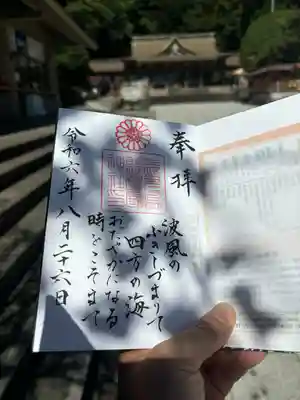 奉拝
波風の
ふきしづまりて
四方の海
おだやかになる
時をこそまて
令和六年八月二十六日